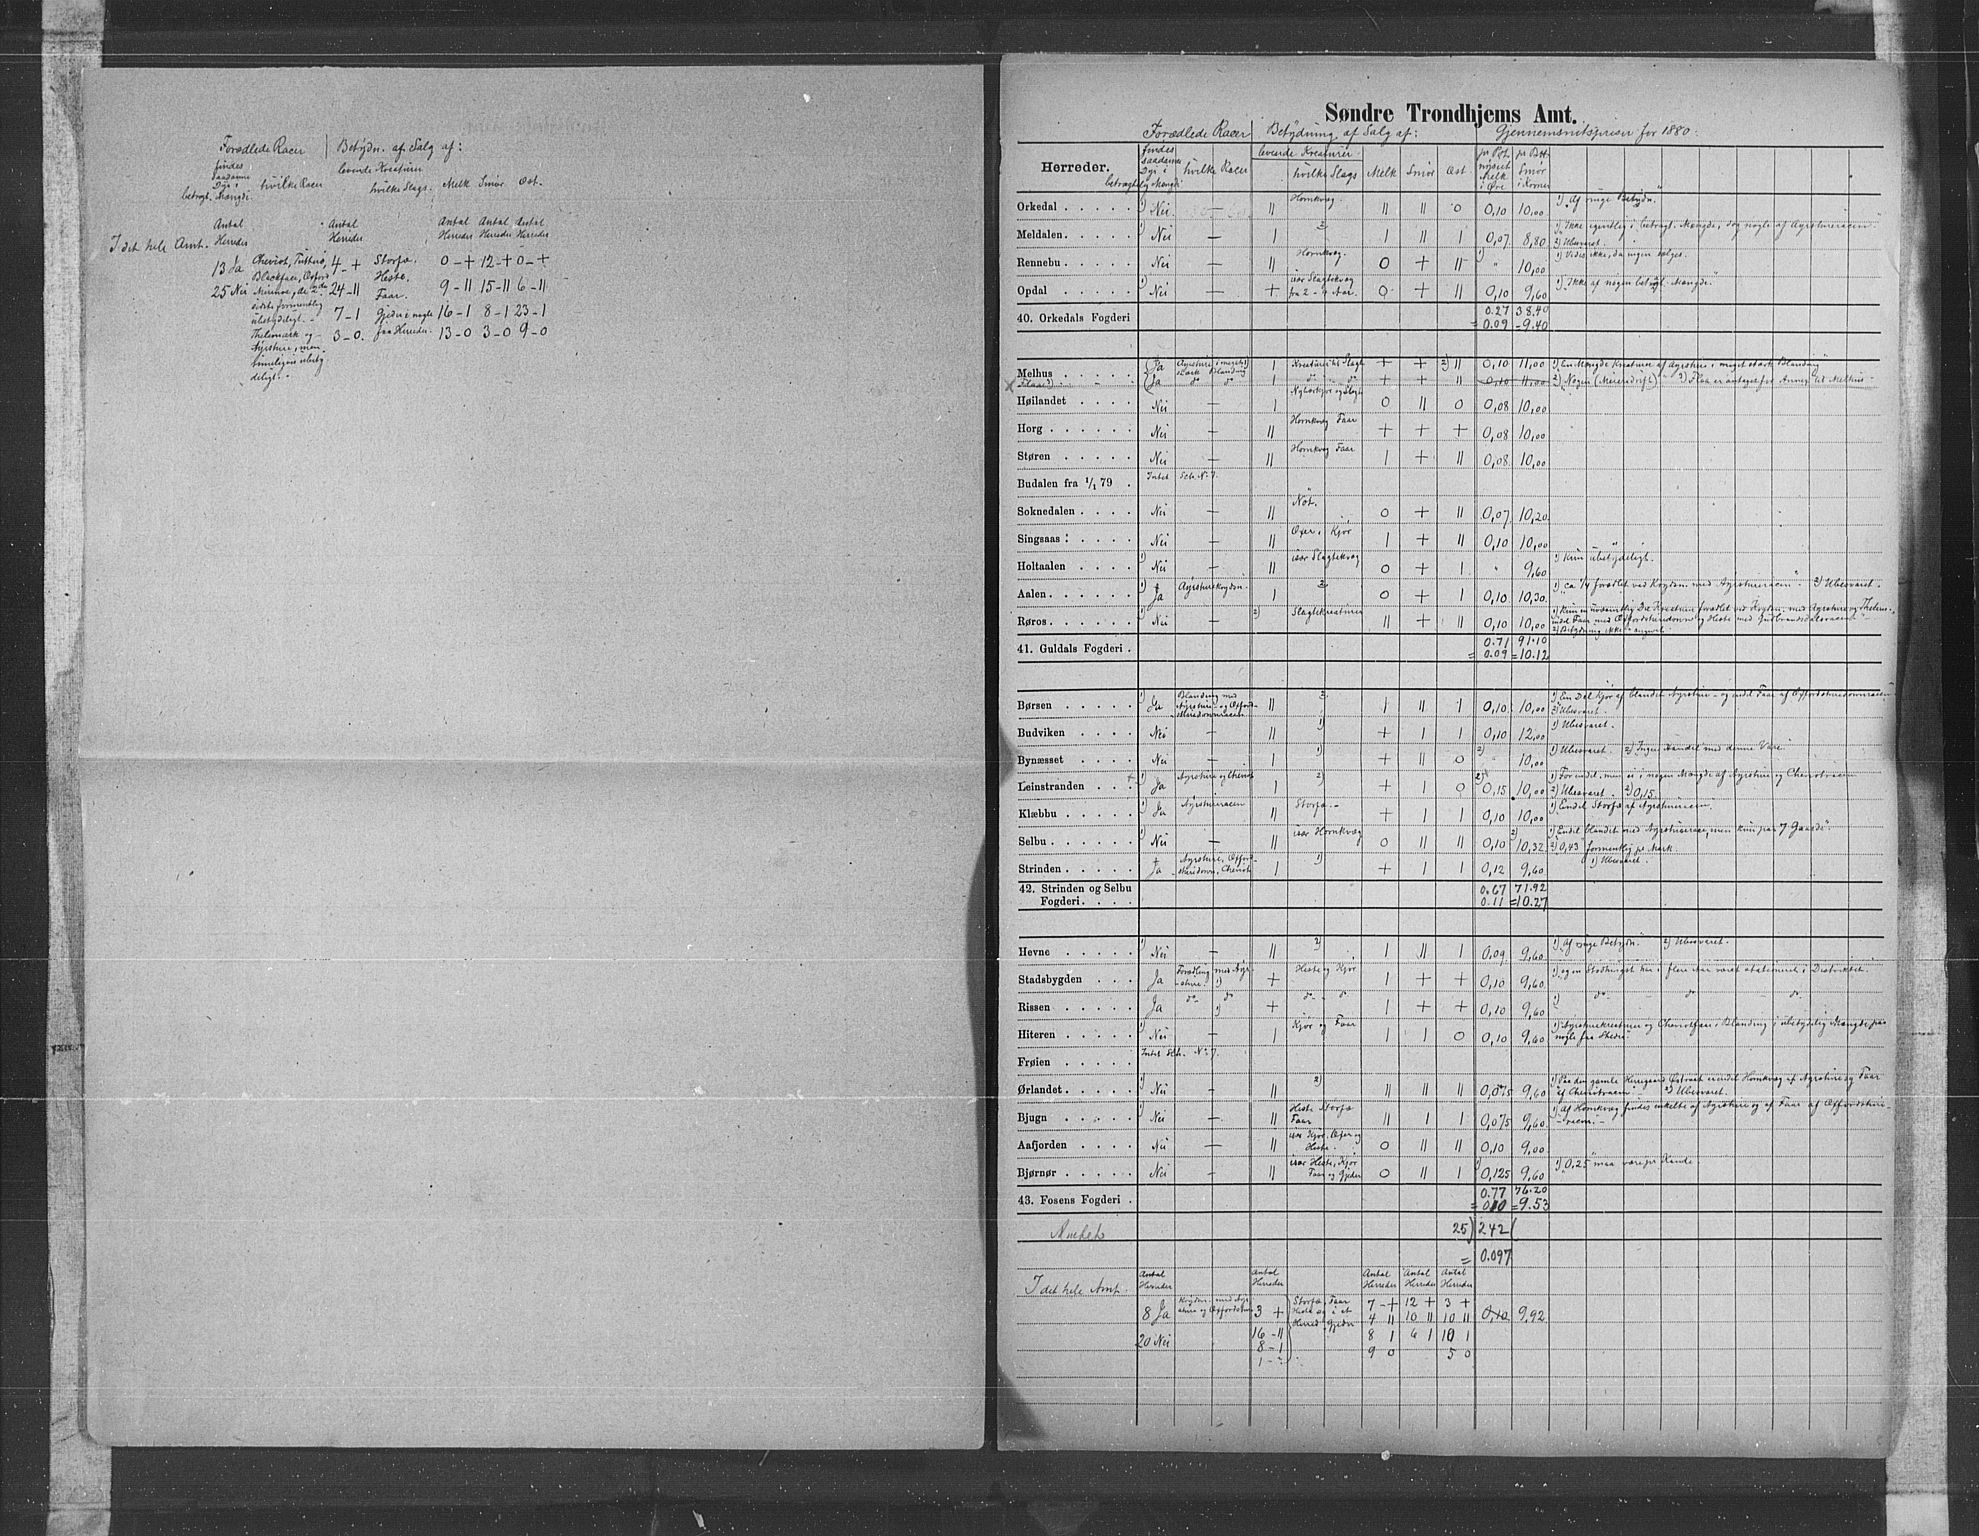 Forædlede Racer | Betydn. af Salg af:
findes saadanne Dyr i betragt. Mængde. hvilke Racer levende Kreaturer hvilke Slags. Melk Smör Ost.
Antal Herreder Antal Herreder Antal Herreder Antal Herreder Antal Herreder
I det hele Amt.
13 Ja Cheviot, 4 - + Storfæ. 0 - + 12 - + 0 - +
Blackface, Oxford Heste
25 Nei 24 - 11 Faar. 9 - 11 15 - 11 6 - 11
sidste formentlig
ubetydeligt. - 7 - 1 Gjeder i nogle 16 - 1 8 - 1 23 - 1
Thelemark og 3 - 0. faa Herreder. 13 - 0 3 - 0 9 - 0
Ayrshire, men
rimeligvis ubety
deligt. -
Søndre Trondhjems Amt.
Forædlede Racer Betydning af Salg af: Gjennemsnitspriser for 1880:
Herreder. findes saadanne Dyr i betragtelig Mængde hvilke Racer levende Kreaturer hvilke Slags Melk Smör Ost pr Pot nysiet Melk i Øre pr Btt. Smör i Kroner
Orkedal 1) Nei — 11 Hornkvæg. 11 11 0 0,10 10,00 1) "Af ringe Betydn."
Meldalen 1) Nei — 1 2) 1 11 1 0,07 8,80 1) "Ikke egentlig i betragt. Mængde, dog nogle af Ayrshireracen" 2) Ubesvaret.
Rennebu Nei — 11 Hornkvæg. 0 + 11 1) " 10,00 1) Vides ikke, da ingen sælges.
Opdal 1) Nei — + især Slagtekvæg fra 2 - 4 Aar. 0 + 11 0,10 9,60 1) "Ikke af nogen betragt. Mængde."
40. Orkedals Fogderi 0.27 38.40
= 0.09 - 9.40
Melhus Ja Ayrshire i meget stærk Blanding 1) 1 Kreaturer til Slagt + + 2) 11 0,10 11,00 1) "En Mængde Kreaturer af Ayrshire i meget stærk Blanding"
Flaa 3) Ja do do 1 do do + + 11 0,10 11,00 2) "Nogen (Meieridrift)" - 3) Flaa er antaget for Annex til Melhus -
Høilandet Nei — 1 Nybærkjør og Slagt 0 11 0 0,08 10,00
Horg Nei — 11 Hornkvæg Faar + + + 0,08 10,00
Støren Nei — 11 Hornkvæg Faar 1 + 11 0,08 10,00
Budalen fra 1/1 79 Intet Sch. No 7.
Soknedalen Nei — 11 Nöt. 0 + 11 0,07 10,20
Singsaas Nei — 11 Oxer, Kjör 1 + 11 0,10 10,00
Holtaalen 1) Nei — 11 især Slagtekvæg 0 + 1 " 9,60 1) "Kun ubetydeligt.
Aalen 1) Ja Ayrshirekrydsn. 1 2) 0 + 1 0,10 10,30 1) "ca 1/4 forædlet ved Krydsn. med Ayrshireracen". 2) Ubesvaret.
Røros 1) Nei — 2) 1 Slagtekreaturer 11 + 11 0,10 10,00 1) Kun en uvæsentlig Del Kreaturer forædlet ved Krydsn. med Ayrshire og Thelem., endel Faar med Oxfordshiredowne og Heste med Gudbrandsdalsracen 2) Betydning ikke angivet.
41. Guldals Fogderi 0.71 91.10
= 0.09 = 10.12
Børsen 1) Ja Blanding med Ayrshire- og Oxfordshiredownracen 11 2) 1 11 1 0,10 10,00 1) "En Del Kjør af blandet Ayrshire - og endel Faar af Oxfordshiredownracen" 2) Ubesvaret.
Budviken Nei — 11 1) + 1 1 0,10 12,00 1) Ubesvaret.
Bynæsset Nei — 1 1) + 11 0 2) " 10,00 1) Ubesvaret. 2) "Ingen Handel med denne Vare.
Leinstranden + 1) Ja Ayrshire og Cheviot 1 2) + 1 0 2) 0,15 10,00 1) "Forendel, men ei i nogen Mængde af Ayrshire og Cheviotracen 2) Ubesvaret. 2) 0,15.
Klæbbu 1) Ja Ayrshireracen 11 Storfæ. - + 1 1 0,10 10,00 1) "Endel Storfæ af Ayrshireracen.
Selbu 1) Nei — 11 især Hornkvæg 0 11 11 0,10 2) 10,32 1) Endel blandet med Ayrshirerace, men kun paa 7 Gaarde". 2) 0,43 formentlig pr Mark.
Strinden Ja Ayrshire, Oxfordshiredown, Cheviot 1 1) + 1 1 0,12 9,60 1) Ubesvaret.
42. Strinden og Selbu 0.67 71.92
Fogderi 0.11 = 10.27
Hevne 1) Nei — 11 2) 1 11 1 0,09 9,60 1) "Af ringe Betydn." 2) Ubesvaret.
Stadsbygden Ja Forædling med Ayrshire 1) + Heste og Kjör 1 + + 0,10 9,60 1) "ogsaa Stodhingst har i flere Aar været stationeret i Distriktet."
Rissen Ja do do 1) + do do 1 + + 0,10 9,60 1) do - do - do
Hiteren 1) Nei — 1 Kjör og Faar 1 1 0 0,10 9,60 1) "Ayrshirekreaturer og Cheviotfaar i Blanding i ubetydelig Mængde paa nogle faa Steder.
Frøien Intet Sch. No 7.
Ørlandet 1) Nei — 11 2) 11 11 11 0,075 9,60 1) "Paa den gamle Herregaard Østraat er endel Hornkvæg af Ayrshire og Faar af Cheviotracen" - 2) Ubesvaret.
Bjugn 1) Nei — 11 Heste Storfæ Faar 11 1 1 0,075 9,60 1) Af Hornkvæg findes enkelte af Ayrshire og af Faar af Oxfordshire- racen. -
Aafjorden Nei — 11 især Kjör, Oxer og Heste 0 11 11 0,10 9,00
Bjørnør Nei — 11 især Heste, Kjör Faar og Gjeder 0 11 1 1) 0,125 9,60 1) "0,25" maa være pr Kande.
43. Fosens Fogderi 0.77 76.20
= 0.10 = 9.53
Amtet 25) 242 (
= 0.097
Antal Herreder Antal Herreder Antal Herreder Antal Herreder Antal Herreder
I det hele Amt.
8 Ja Krydsn. med Ayrshire og Oxfordshire 3 + Storfæ, Faar 7 - + 12 + 3 + 0,10 9,92
Heste og i et 4 11 10 11 10 11
20 Nei 16 - 11 Herred Gjeder 8 1 6 1 10 1
8 - 1 9 0 5 0
1 - ?